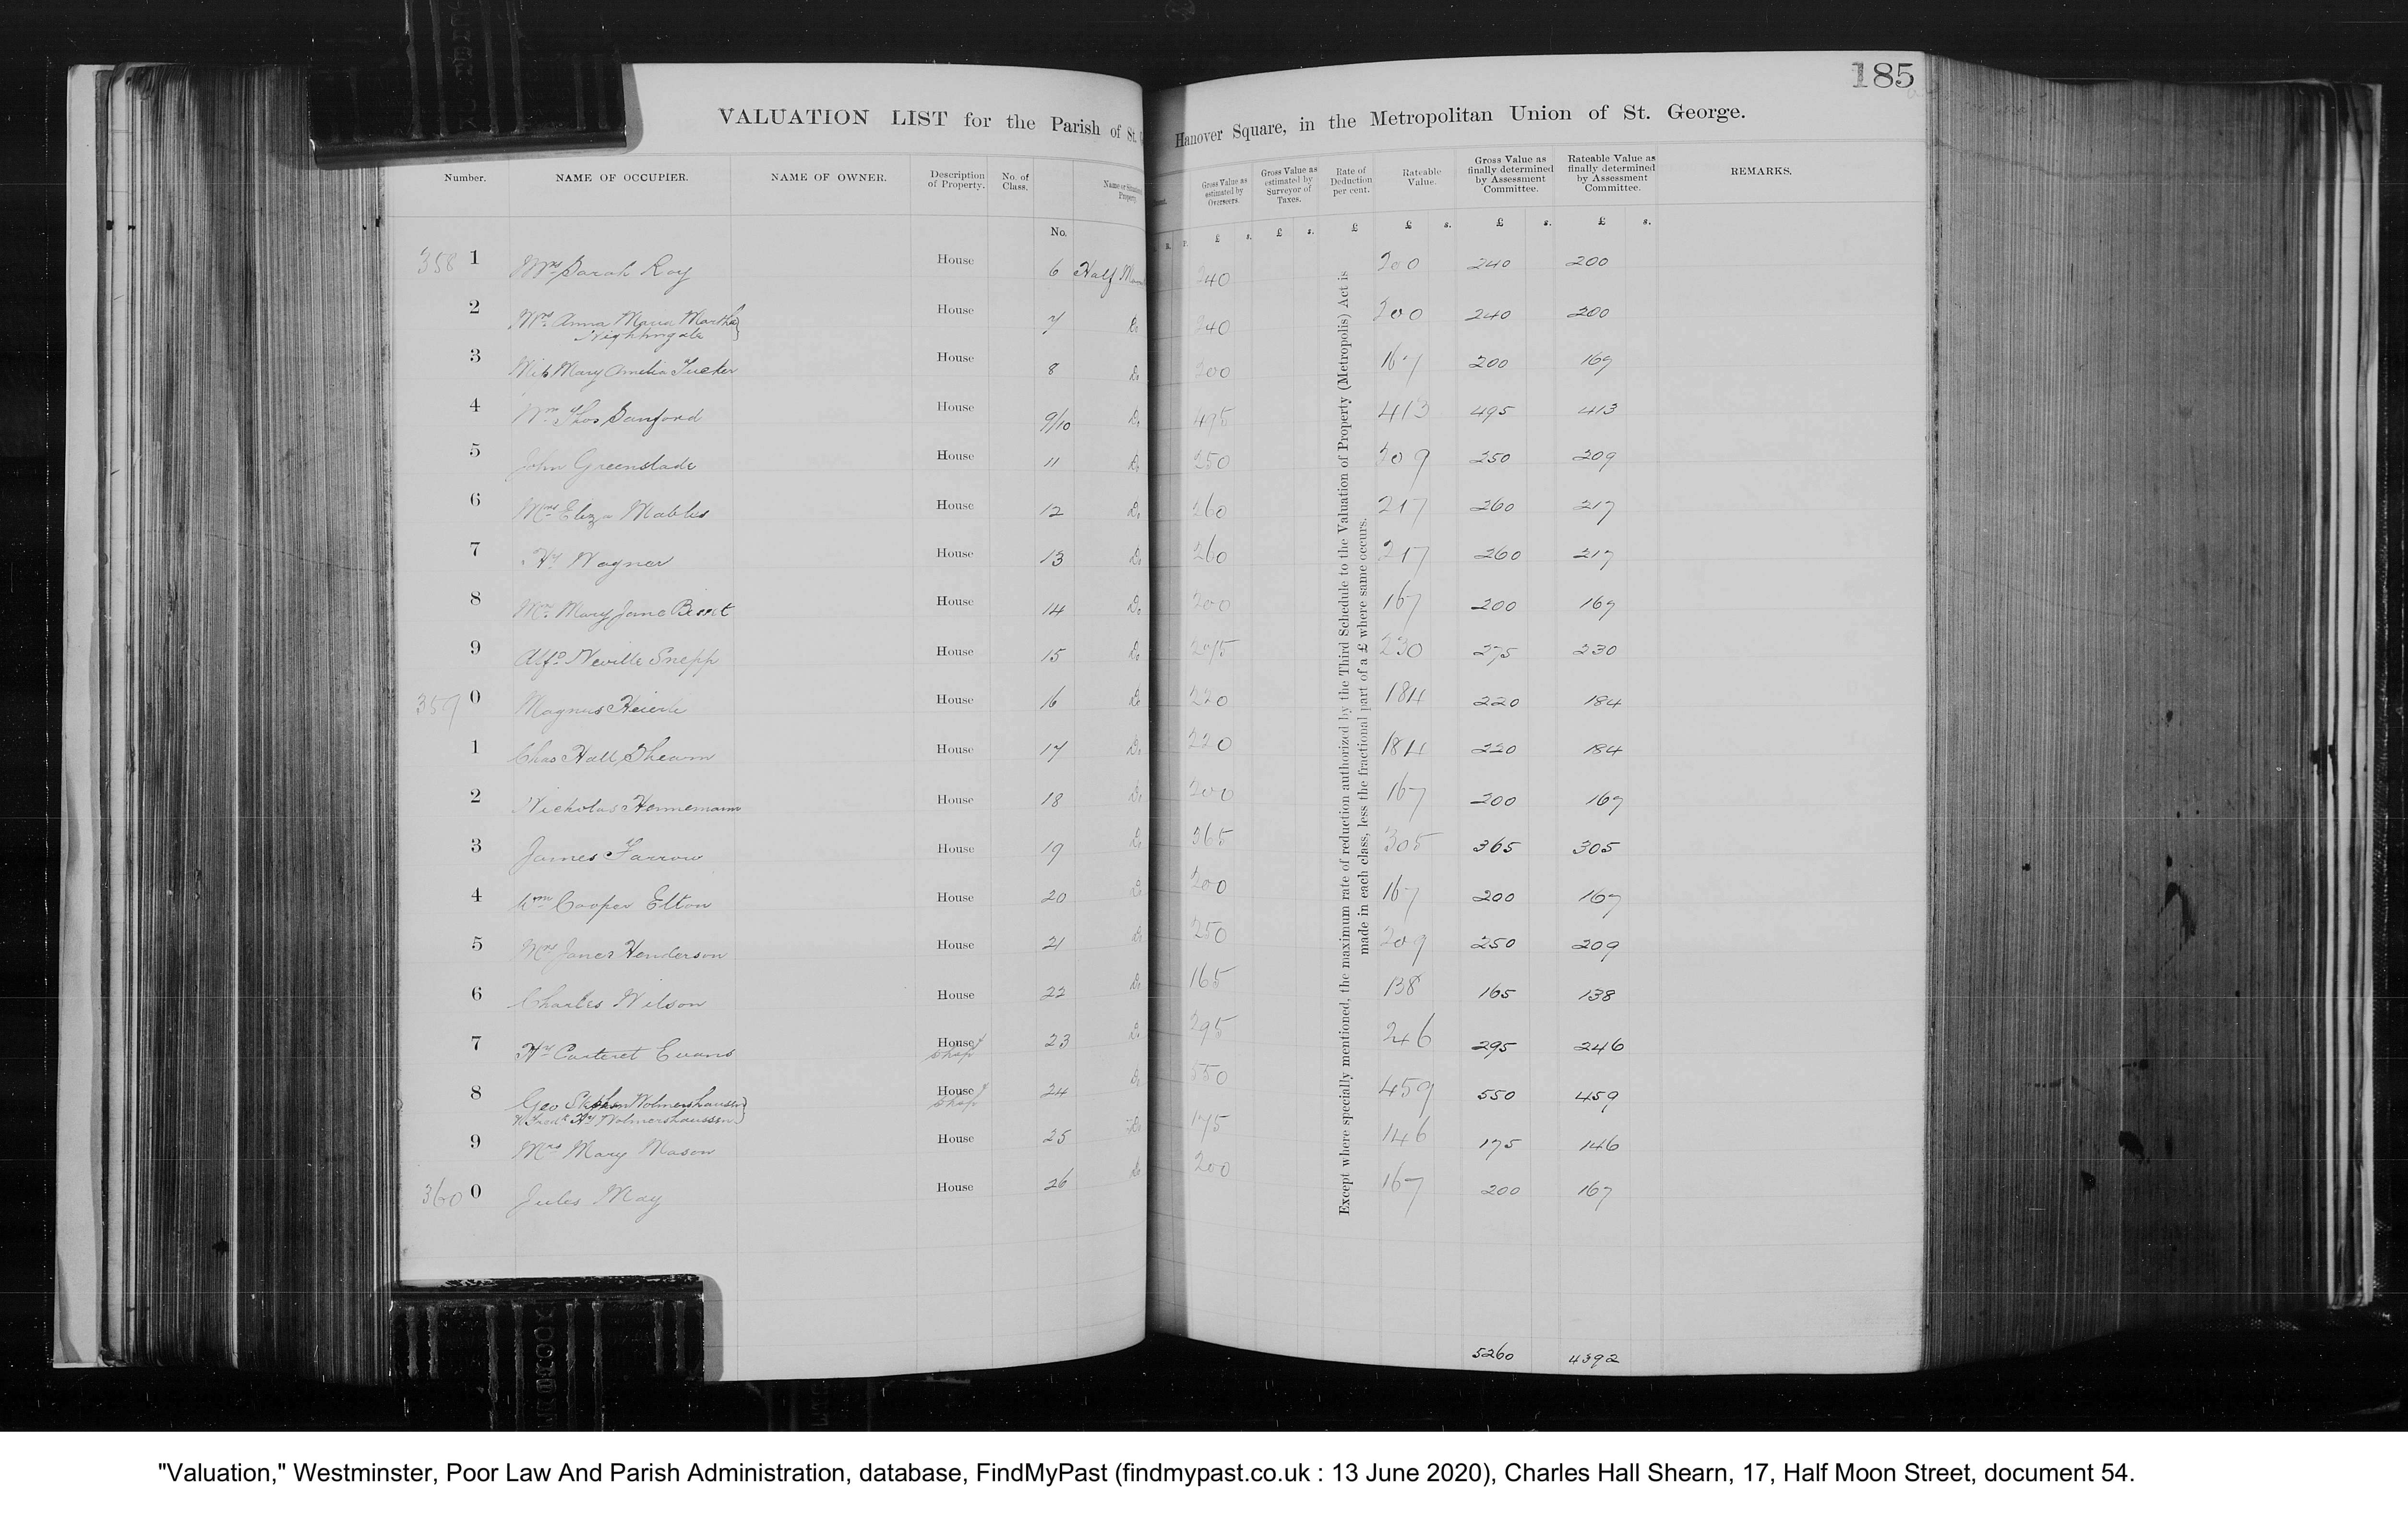 185
VALUATION LIST for the Parish of St. Hanover Square, in the Metropolitan Union of St. George.
Number. NAME OF OCCUPIER. NAME OF OWNER. Description of Property. No. of Class. No. Name or Property Gross Value as estimated by Overseers. Gross Value as estimated by Surveyor of Taxes. Rate of Deduction per cent. Rateable Value. Gross Value as finally determined by Assessment Committee. Rateable Value as finally determined by Assessment Committee. REMARKS.
£ s. £ s. £ £ s. £ s. £ s.
358 1 Mrs Sarah Roy House 6 Half Moon 240 200 240 200
2 Mrs Anna Maria Martha Nightingale House 7 Do 240 200 240 200
3 Miss Mary Amelia Tucker House 8 Do 200 167 200 167
4 Wm Thos Sanford House 9/10 Do 495 413 495 413
5 John Greenslade House 11 Do 250 209 250 209
6 Mrs Eliza House 12 Do 260 217 260 217
7 Hy Wagner House 13 Do 260 217 260 217
8 Mrs Mary Jane House 14 Do 200 167 200 167
9 Alfd Neville Snepp House 15 Do 275 230 275 230
359 0 Magnus House 16 Do 220 184 220 184
1 Chas Hall Shearn House 17 Do 220 184 220 184
2 Nicholas Hennemann House 18 Do 200 167 200 167
3 James Farrow House 19 Do 365 305 365 305
4 Wm Cooper Elton House 20 Do 200 167 200 167
5 Mrs Janet Henderson House 21 Do 250 209 250 209
6 Charles Wilson House 22 Do 165 138 165 138
7 Hy Carteret Evans House & Shop 23 Do 295 246 295 246
8 Geo Stephen Wolmershausen House & Shop 24 Do 550 459 550 459
& Fredk Hy Wolmershaussen
9 Mrs Mary Mason House 25 Do 175 146 175 146
360 0 Jules May House 26 Do 200 167 200 167
Except where specially mentioned, the maximum rate of reduction authorized by the Third Schedule to the Valuation of Property (Metropolis) Act is
made in each class, less the fractional part of a £ where same occurs.
5260 4392
"Valuation," Westminster, Poor Law And Parish Administration, database, FindMyPast (findmypast.co.uk : 13 June 2020), Charles Hall Shearn, 17, Half Moon Street, document 54.